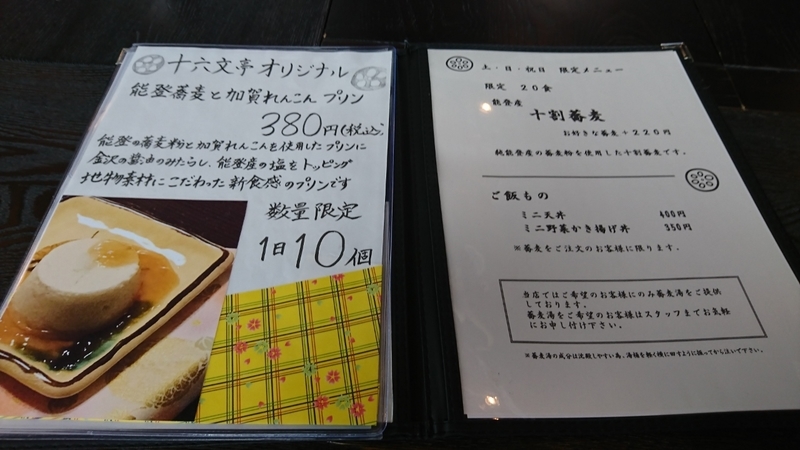 十六文亭オリジナル
能登蕎麦と加賀れんこん プリン
380円(税込)
能登の蕎麦粉と加賀れんこんを使用したプリンに
金沢の醤油のみたらし、能登産の塩をトッピング
地物素材にこだわった新食感のプリンです
数量限定
1日10個
土・日・祝日 限定メニュー
限定 20食
能登産
十割蕎麦
お好きな蕎麦+220円
純能登産の蕎麦粉を使用した十割蕎麦です。
ご飯もの
ミニ天丼 400円
ミニ野菜かき揚げ丼 350円
※蕎麦をご注文のお客様に限ります。
当店ではご希望のお客様にのみ蕎麦湯をご提供
しております。
蕎麦湯をご希望のお客様はスタッフまでお気軽
にお申し付け下さい。
※蕎麦湯の成分は沈殿しやすい為、湯桶を軽く横に回すように振ってから注いで下さい。